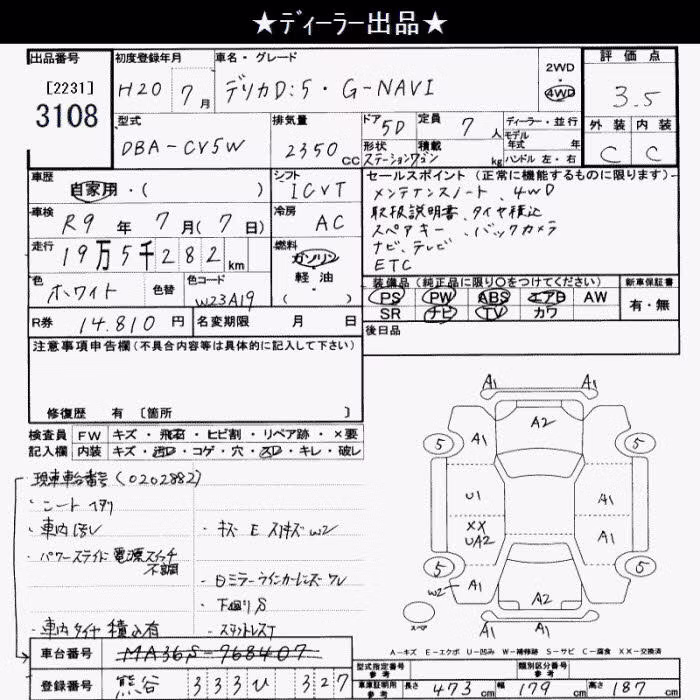 ★ディーラー出品★
出品番号 初度登録年月 車名・グレード 評価点
[2231]
3108
H20 7月 デリカD:5・G-NAVI 2WD・4WD 3.5
型式 排気量 ドア 5D 定員 7人 ディーラー・並行 外装 内装
DBA-CV5W 2350cc 形状 ステーションワゴン 積載 kg モデル年式 年 ハンドル 左・右 C C
車歴 自家用・( ) シフト ICVT
セールスポイント(正常に機能するものに限ります)
メンテナンスノート、4WD
取扱説明書、タイヤ積込
スペアキー、バックカメラ
ナビ、テレビ
ETC
車検 R9年7月(7日) 冷房 AC
走行 19万5千282km 燃料 ガソリン・軽油・( )
色 ホワイト 色替 色コード W23A19
装備品(純正品に限り○をつけてください) 新車保証書
PS PW ABS エアB AW 有・無
SR ナビ TV カワ
R券 14.810円 名変期限 月 日
後日品
注意事項申告欄(不具合内容等は具体的に記入して下さい)
修復歴 有 [箇所 ]
検査員 FW キズ・飛石・ヒビ割・リペア跡・×要
記入欄 内装 キズ・汚レ・コゲ・穴・スレ・キレ・破レ
現車車台番号(0202882)
・シート
・車内汚レ
・キズ E スリキズ W2
・パワースライド電源スイッチ不調
・下廻りS
・車内タイヤ積込有
車台番号 MA36S-768407
登録番号 熊谷 333 ひ 327
A1 A1
A2
5 A1 A1 5
U1 A1
XX
UA2 A1
5 5
W2 A1 A1
A2
スペア
A1 A1
A-キズ E-エクボ U-凹み W-補修跡 S-サビ C-腐食 XX-交換済
型式指定番号 参考 類別区分番号 参考
車庫証明用 参考 長さ 473cm 幅 179cm 高さ 187cm